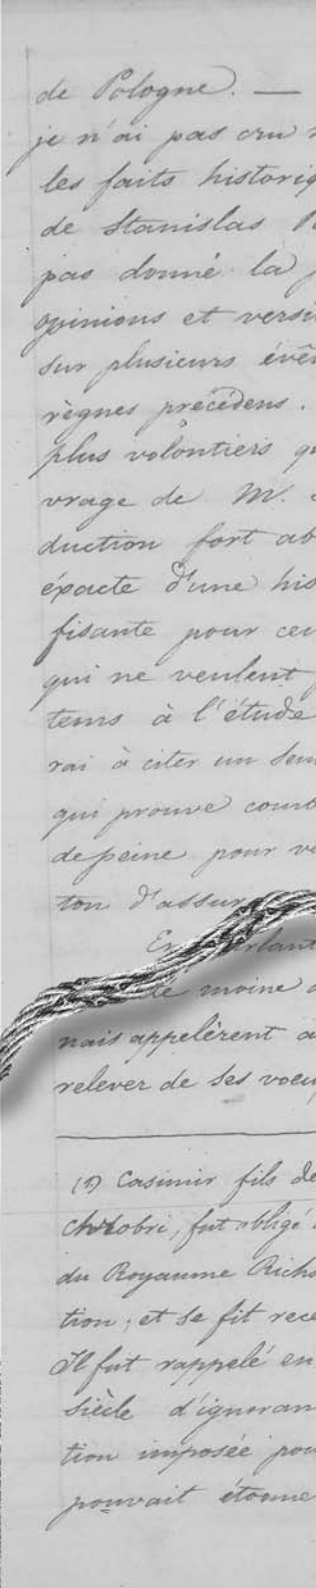 de Pologne. —
je n'ai pas cru
les faits historiq
de Stanislas
pas donné la
opinions et versi
sur plusieurs évé
règnes précédens.
plus volontiers qu
vrage de M.
duction fort ab
éxacte d'une his
fisante pour ceu
qui ne veulent
tems à l'étude
rai à citer un seu
qui prouve comb
de peine pour
ton d'assur
En parlant
le moine
nais appelèrent a
relever de ses voeu
(1) Casimir fils de
Chrobri, fut obligé
du Royaume Richs
tion; et se fit rece
Il fut rappelé en
siècle d'ignoran
tion imposée pou
pouvait étonne